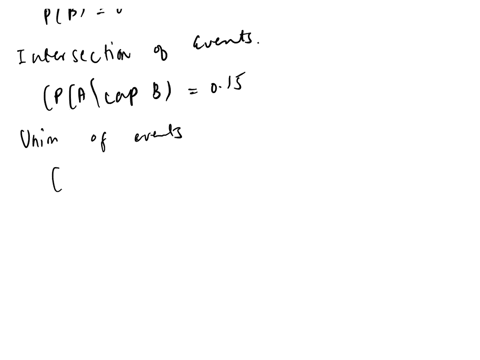 P(B) = 0
Intersection of events.
(P(A\cap B) = 0.15
Union of events
(